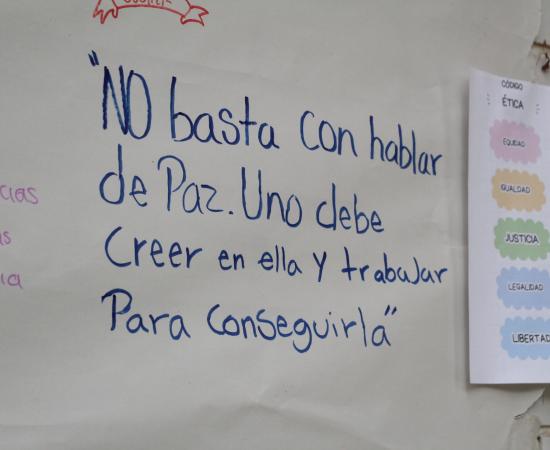 "NO basta con hablar
de Paz. Uno debe
Creer en ella y trabajar
Para conseguirla"
CÓDIGO
ÉTICA
EQUIDAD
IGUALDAD
JUSTICIA
LEGALIDAD
LIBERTAD